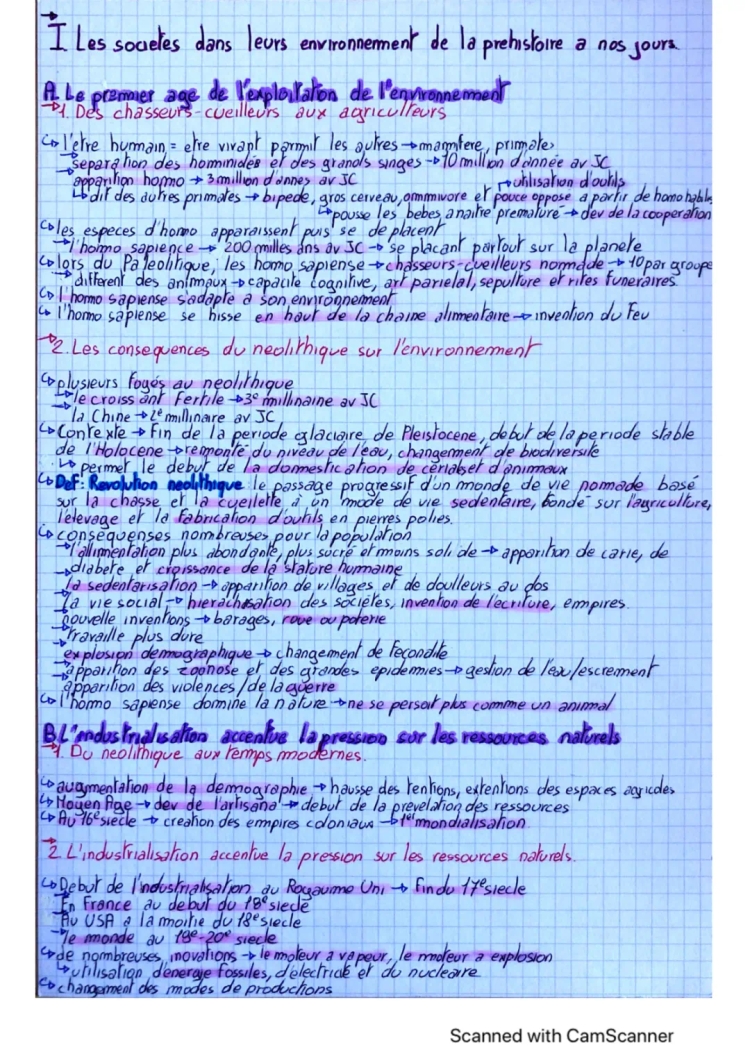 I Les societes dans leurs environnement de la prehistoire a nos jours.
A. Le premier age de l'exploitation de l'environnement
1. Des chasseurs-cueilleurs aux agriculteurs
l'etre humain = etre vivant parmit les autres → mamnfere, primates
separation des hominidés et des grands singes → 10 million d'année av JC
apparition homo → 3 million d'annes av JC
→ utilisation d'outils
dif des autres primates → bipede, gros cerveau, ommivore et pouce oppose a partir de homo habilis
→ pousse les bebes a naitre premature → dev de la cooperation
les especes d'homo apparaissent puis se de placent
l'homo sapience → 200 milles ans av JC → se placant partout sur la planete
lors du Paleolitique, les homo sapiense → chasseurs-cueilleurs normade → 40 par groupe
different des animaux → capacite cognitive, art parietal, sepulture et rites funeraires.
l'homo sapiense s'adapte a son environnement
l'homo sapiense se hisse en haut de la chaine alimentaire → invention du feu
2. Les consequences du neolithique sur l'environnement
plusieurs foyés au neolithique
le croissant Fertile → 3e millinaine av JC
la Chine → 2e millinaire av JC
Contexte → fin de la periode glaciaire, de Pleistocene, debut de la periode stable
de l'Holocene → remonté du niveau de l'eau, changement de biodiversite
→ permet le debut de la domestication de cerialset d'animaux
Def: Revolution neolithique: le passage progressif d'un monde de vie nomade basé
sur la chasse et la cueillette à un mode de vie sedentaire, fondé sur l'agriculture,
l'elevage et la fabrication d'outils en pierres polies.
consequenses nombreuses pour la population
l'allimentation plus abondante, plus sucré et moins solide → apparition de carie, de
diabete et croissance de la stature humaine
la sedentarisation → apparition de villages et de doulleurs au dos
la vie social → hierachisation des societes, invention de l'ecriture, empires.
nouvelle inventions → barages, roue ou poterie
Travaille plus dure
explosion demographique → changement de fecondite
apparition des zoonose et des grandes epidemies → gestion de l'eau/escrement
apparition des violences / de la guerre
l'homo sapiense domine la nature → ne se persoit plus comme un animal
B. L'industrialisation accentue la pression sur les ressources naturels
1. Du neolithique aux temps modernes.
augmentation de la demographie → hausse des tentions, extentions des espaces agricoles
Moyen Age → dev de l'artisana → debut de la prevelation des ressources
Au 16e siecle → creation des empires coloniaux → 1er mondialisation
2. L'industrialisation accentue la pression sur les ressources naturels.
Debut de l'industrialisation au Royaume Uni → fin du 17e siecle
En France au debut du 18e siecle
Au USA a la moitie du 18e siecle
le monde au 19e-20e siecle
de nombreuses inovations → le moteur a vapeur, le moteur a explosion
utilisation d'energie fossiles, d'electricité et du nucleaire
changement des modes de productions
Scanned with CamScanner